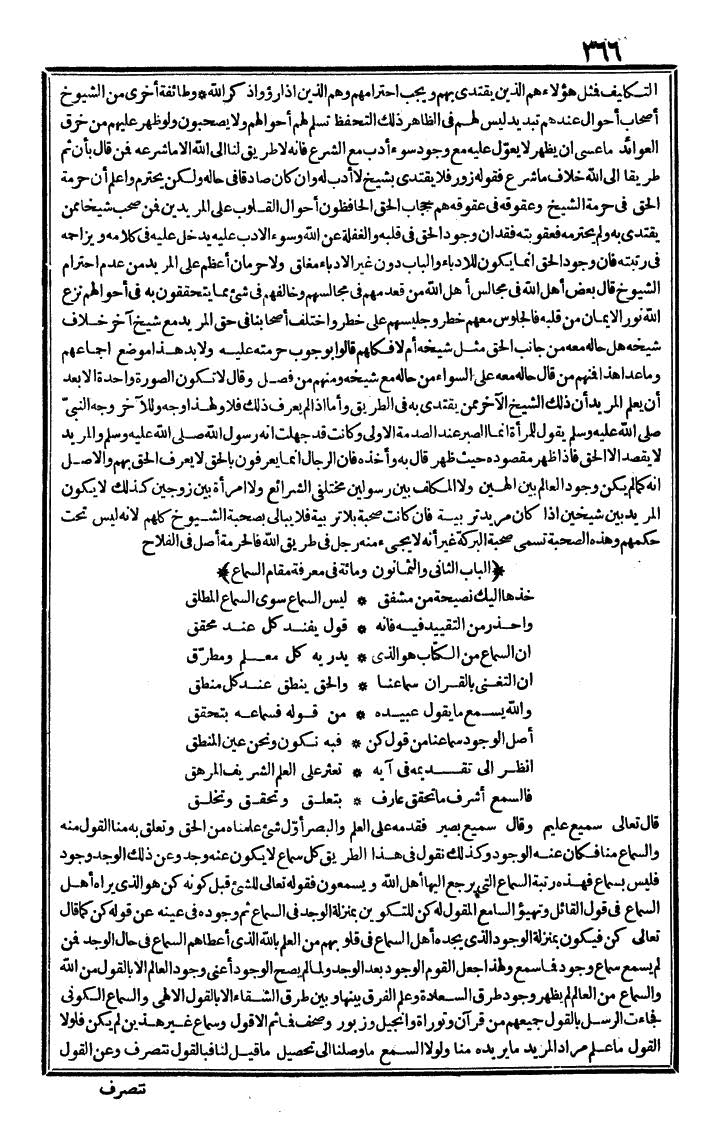 ٣٦٦
التكاليف فمثل هؤلاء هم الذين يقتدى بهم ويجب احترامهم وهم الذين اذا رؤوا ذكر الله * وطائفة أخرى من الشيوخ
أصحاب أحوال عندهم تبديد ليس لهم فى الظاهر ذلك التحفظ تسلم لهم أحوالهم ولا يصحبون ولو ظهر عليهم من خرق
العوائد ما عسى ان يظهر لا يعوّل عليه مع وجود سوء أدب مع الشرع فانه لا طريق لنا الى الله الا ما شرعه فمن قال بأن ثم
طريقا الى الله خلاف ما شرع فقوله زور فلا يقتدى بشيخ لا أدب له وان كان صادقا فى حاله ولكن يحترم واعلم أن حرمة
الحق فى حرمة الشيخ وعقوقه فى عقوقه هم حجاب الحق الحافظون أحوال القلوب على المريدين فمن صحب شيخا ممن
يقتدى به ولم يحترمه فعقوبته فقدان وجود الحق فى قلبه والغفلة عن الله وسوء الادب عليه يدخل عليه فى كلامه ويزاحمه
فى رتبته فان وجود الحق انما يكون للادباء والباب دون غير الادباء مغلق ولا حرمان أعظم على المريد من عدم احترام
الشيوخ قال بعض أهل الله فى مجالس أهل الله من قعد معهم فى مجالسهم وخالفهم فى شئ مما يتحققون به فى أحوالهم نزع
الله نور الايمان من قلبه فالجلوس معهم خطر وجليسهم على خطر واختلف أصحابنا فى حق المريد مع شيخ آخر خلاف
شيخه هل حاله معه من جانب الحق مثل شيخه أم لا فكلهم قالوا بوجوب حرمته عليه ولا بد هذا موضع اجماعهم
وما عدا هذا فمنهم من قال حاله معه على السواء من حاله مع شيخه ومنهم من فصل وقال لا تكون الصورة واحدة الا بعد
أن يعلم المريد أن ذلك الشيخ الآخر ممن يقتدى به فى الطريق وأما اذا لم يعرف ذلك فلا ولهذا وجه وللآخر وجه النبىّ
صلى الله عليه وسلم يقول للمرأة انما الصبر عند الصدمة الاولى وكانت قد جهلت انه رسول الله صلى الله عليه وسلم والمريد
لا يقصد الا الحق فاذا ظهر مقصوده حيث ظهر قال به وأخذه فان الرجال انما يعرفون بالحق لا يعرف الحق بهم والاصل
انه كما لم يكن وجود العالم بين الهين ولا المكلف بين رسولين مختلفى الشرائع ولا امرأة بين زوجين كذلك لا يكون
المريد بين شيخين اذا كان مريد تربية فان كانت صحبة بلا تربية فلا يبالى بصحبة الشيوخ كلهم لانه ليس تحت
حكمهم وهذه الصحبة تسمى صحبة البركة غير أنه لا يجىء منه رجل فى طريق الله فالحرمة أصل فى الفلاح
﴿الباب الثانى والثمانون ومائة فى معرفة مقام السماع﴾
خذها اليك نصيحة من مشفق * ليس السماع سوى السماع المطلق
واحذر من التقييد فيه فانه * قول يفند كل عند محقق
ان السماع من الكتاب هو الذى * يدريه كل معلم ومطرّق
ان التغنى بالقران سماعنا * والحق ينطق عند كل منطق
والله يسمع ما يقول عبيده * من قوله فسماعه بتحقق
أصل الوجود سماعنا من قول كن * فبه نكون ونحن عين المنطق
انظر الى تقديمه فى آيه * تعثر على العلم الشريف المرهق
فالسمع أشرف ما تحقق عارف * بتعلق وتحقق وتخلق
قال تعالى سميع عليم وقال سميع بصير فقدمه على العلم والبصر أوّل شئ علمناه من الحق وتعلق به منا القول منه
والسماع منا فكان عنه الوجود وكذلك نقول فى هذا الطريق كل سماع لا يكون عنه وجد وعن ذلك الوجد وجود
فليس بسماع فهذه رتبة السماع التى يرجع اليها أهل الله ويسمعون فقوله تعالى للشئ قبل كونه كن هو الذى يراه أهل
السماع فى قول القائل وتهيؤ السامع المقول له كن للتكوين بمنزلة الوجد فى السماع ثم وجوده فى عينه عن قوله كن كما قال
تعالى كن فيكون بمنزلة الوجود الذى يجده أهل السماع فى قلوبهم من العلم بالله الذى أعطاهم السماع فى حال الوجد فمن
لم يسمع سماع وجود فما سمع ولهذا جعل القوم الوجود بعد الوجد ولما لم يصح الوجود أعنى وجود العالم الا بالقول من الله
والسماع من العالم لم يظهر وجود طرق السعادة وعلم الفرق بينها وبين طرق الشقاء الا بالقول الالهى والسماع الكونى
فجاءت الرسل بالقول جميعهم من قرآن وتوراة وانجيل وزبور وصحف فما ثم الا قول وسماع غير هذين لم يكن فلولا
القول ما علم مراد المريد ما يريده منا ولولا السمع ما وصلنا الى تحصيل ما قيل لنا فبالقول نتصرف وعن القول
نتصرف